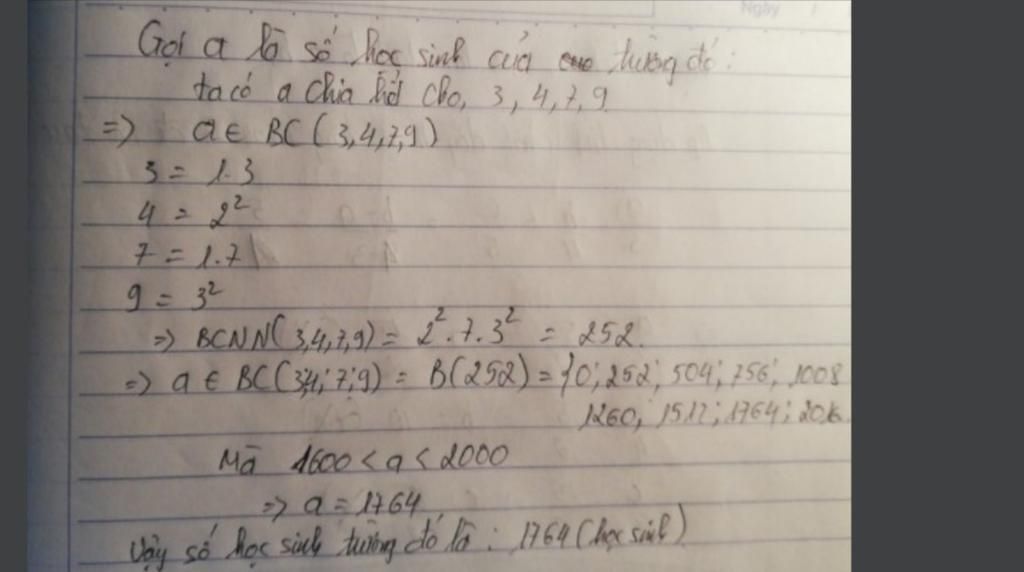 Ngày
Gọi a là số học sinh của trường đó:
ta có a chia hết cho, 3, 4, 7, 9
=> a ∈ BC (3,4,7,9)
3 = 1.3
4 = 2²
7 = 1.7
9 = 3²
=> BCNN(3,4,7,9) = 2².7.3² = 252.
=> a ∈ BC(3;4;7;9) = B(252) = {0; 252; 504; 756; 1008
1260, 1512; 1764; 2016
Mà 1600 < a < 2000
=> a = 1764
Vậy số học sinh trường đó là: 1764 (học sinh)